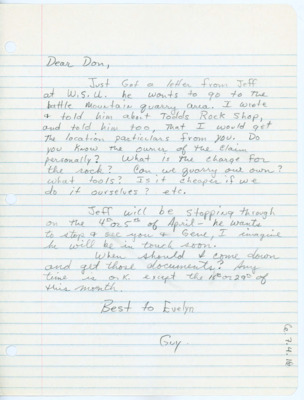 Dear Don,
Just Got a letter from Jeff
at W.S.U. he wants to go to the
battle mountain quarry area. I wrote
& told him about Todds Rock Shop,
and told him too, that I would get
the location particulars from you. Do
you know the owner of the claim
personally? What is the charge for
the rock? Can we quarry our own?
what tools? Is it cheaper if we
do it ourselves? etc.
Jeff will be stopping through
on the 4th or 5th of April - he wants
to stop & see you & Gene, I imagine
he will be in touch soon.
When should I come down
and get those documents? Any
time is o.k. except the
of
this month.
Best to Evelyn
Guy.